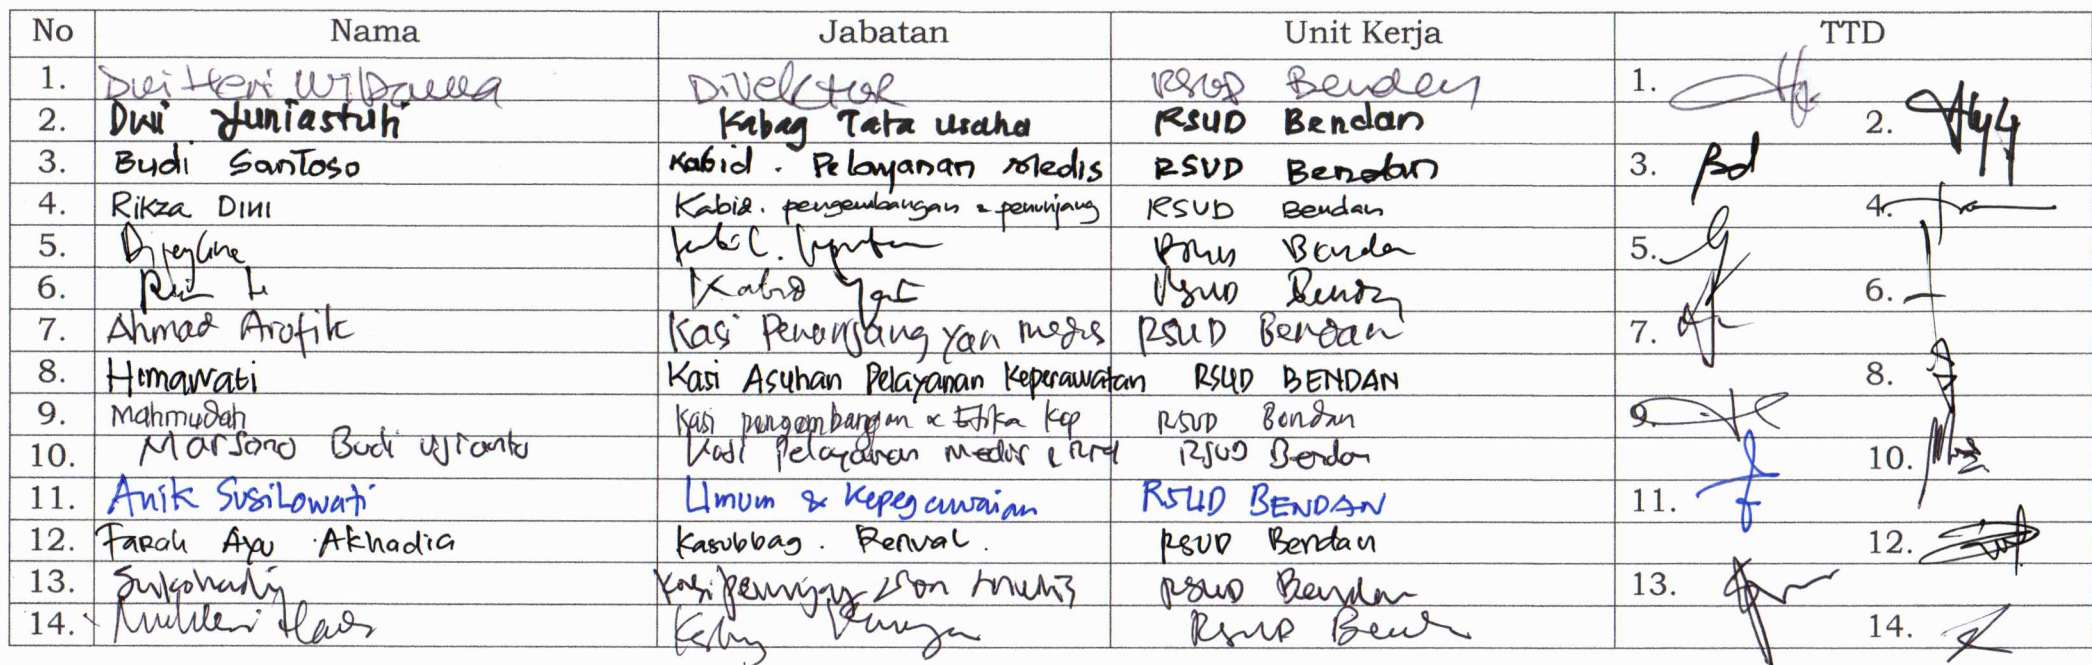 No Nama Jabatan Unit Kerja TTD
1. Dwi Heri Wibawa Direktur RSUD Bendan 1.
2. Dwi Yuniastuti Kabag Tata Usaha RSUD Bendan 2.
3. Budi Santoso Kabid. Pelayanan Medis RSUD Bendan 3.
4. Rikza Dini Kabid. pengembangan & penunjang RSUD Bendan 4.
5. RSUD Bendan 5.
6. Kabid RSUD Bendan 6.
7. Ahmad Arofik Kasi Penunjang yan medis RSUD Bendan 7.
8. Hemawati Kasi Asuhan Pelayanan Keperawatan RSUD BENDAN 8.
9. Mahmudah Kasi pengembangan & Etika Kep RSUD Bendan 9.
10. Marsono Budi Ujianto Kasi Pelayanan Medis & RSUD Bendan 10.
11. Anik Susilowati Umum & Kepegawaian RSUD BENDAN 11.
12. Farah Ayu Akhadia Kasubbag. Renval. RSUD Bendan 12.
13. Kasi RSUD Bendan 13.
14. RSUD 14.